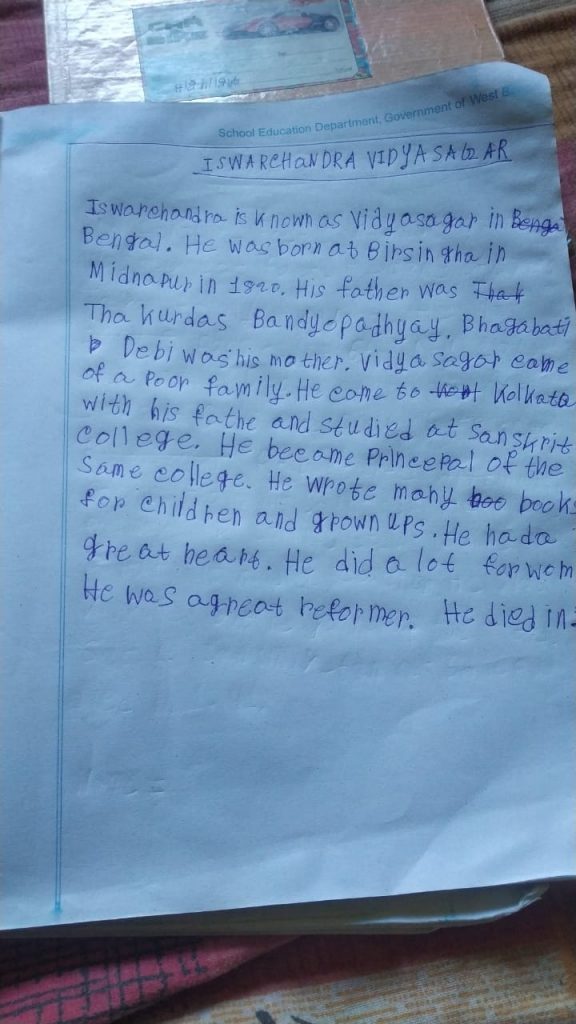 School Education Department, Government of West B
ISWARCHANDRA VIDYASAGAR
Iswarchandra is known as Vidyasagar in Benga
Bengal. He was born at Birsingha in
Midnapur in 1820. His father was That
Tha Kurdas Bandyopadhyay. Bhagabati
Debi was his mother. Vidyasagar came
of a poor family. He come to Kolkata
with his fathe and studied at Sanskrit
College. He became Princepal of the
Same college. He wrote many boo books
for children and grown ups. He had a
great heart. He did a lot for wom
He was a great reformer. He died in